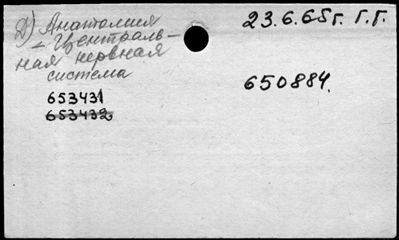 Д) Анатомия
- Централь-
ная нервная
система
23.6.65г. Г.Г.
650884.
653431
653432